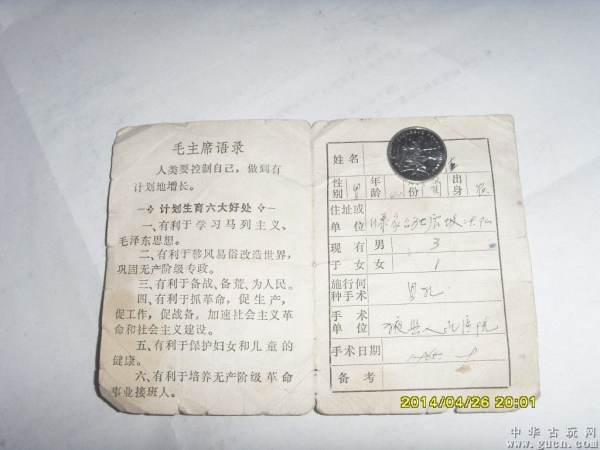 毛主席语录
人类要控制自己，做到有
计划地增长。
计划生育六大好处
一、有利于学习马列主义、
毛泽东思想。
二、有利于移风易俗改造世界，
巩固无产阶级专政。
三、有利于备战、备荒、为人民。
四、有利于抓革命，促生产，
促工作，促战备，加速社会主义革
命和社会主义建设。
五、有利于保护妇女和儿童的
健康。
六、有利于培养无产阶级革命
事业接班人。
姓名
性别 男 年龄 份 出身
住址或
单位
现有 男 3
子女 女 1
施行何
种手术 男扎
手术
单位 县人民医院
手术日期
备考
2014/04/26 20:01
中华古玩网
www.gucn.com